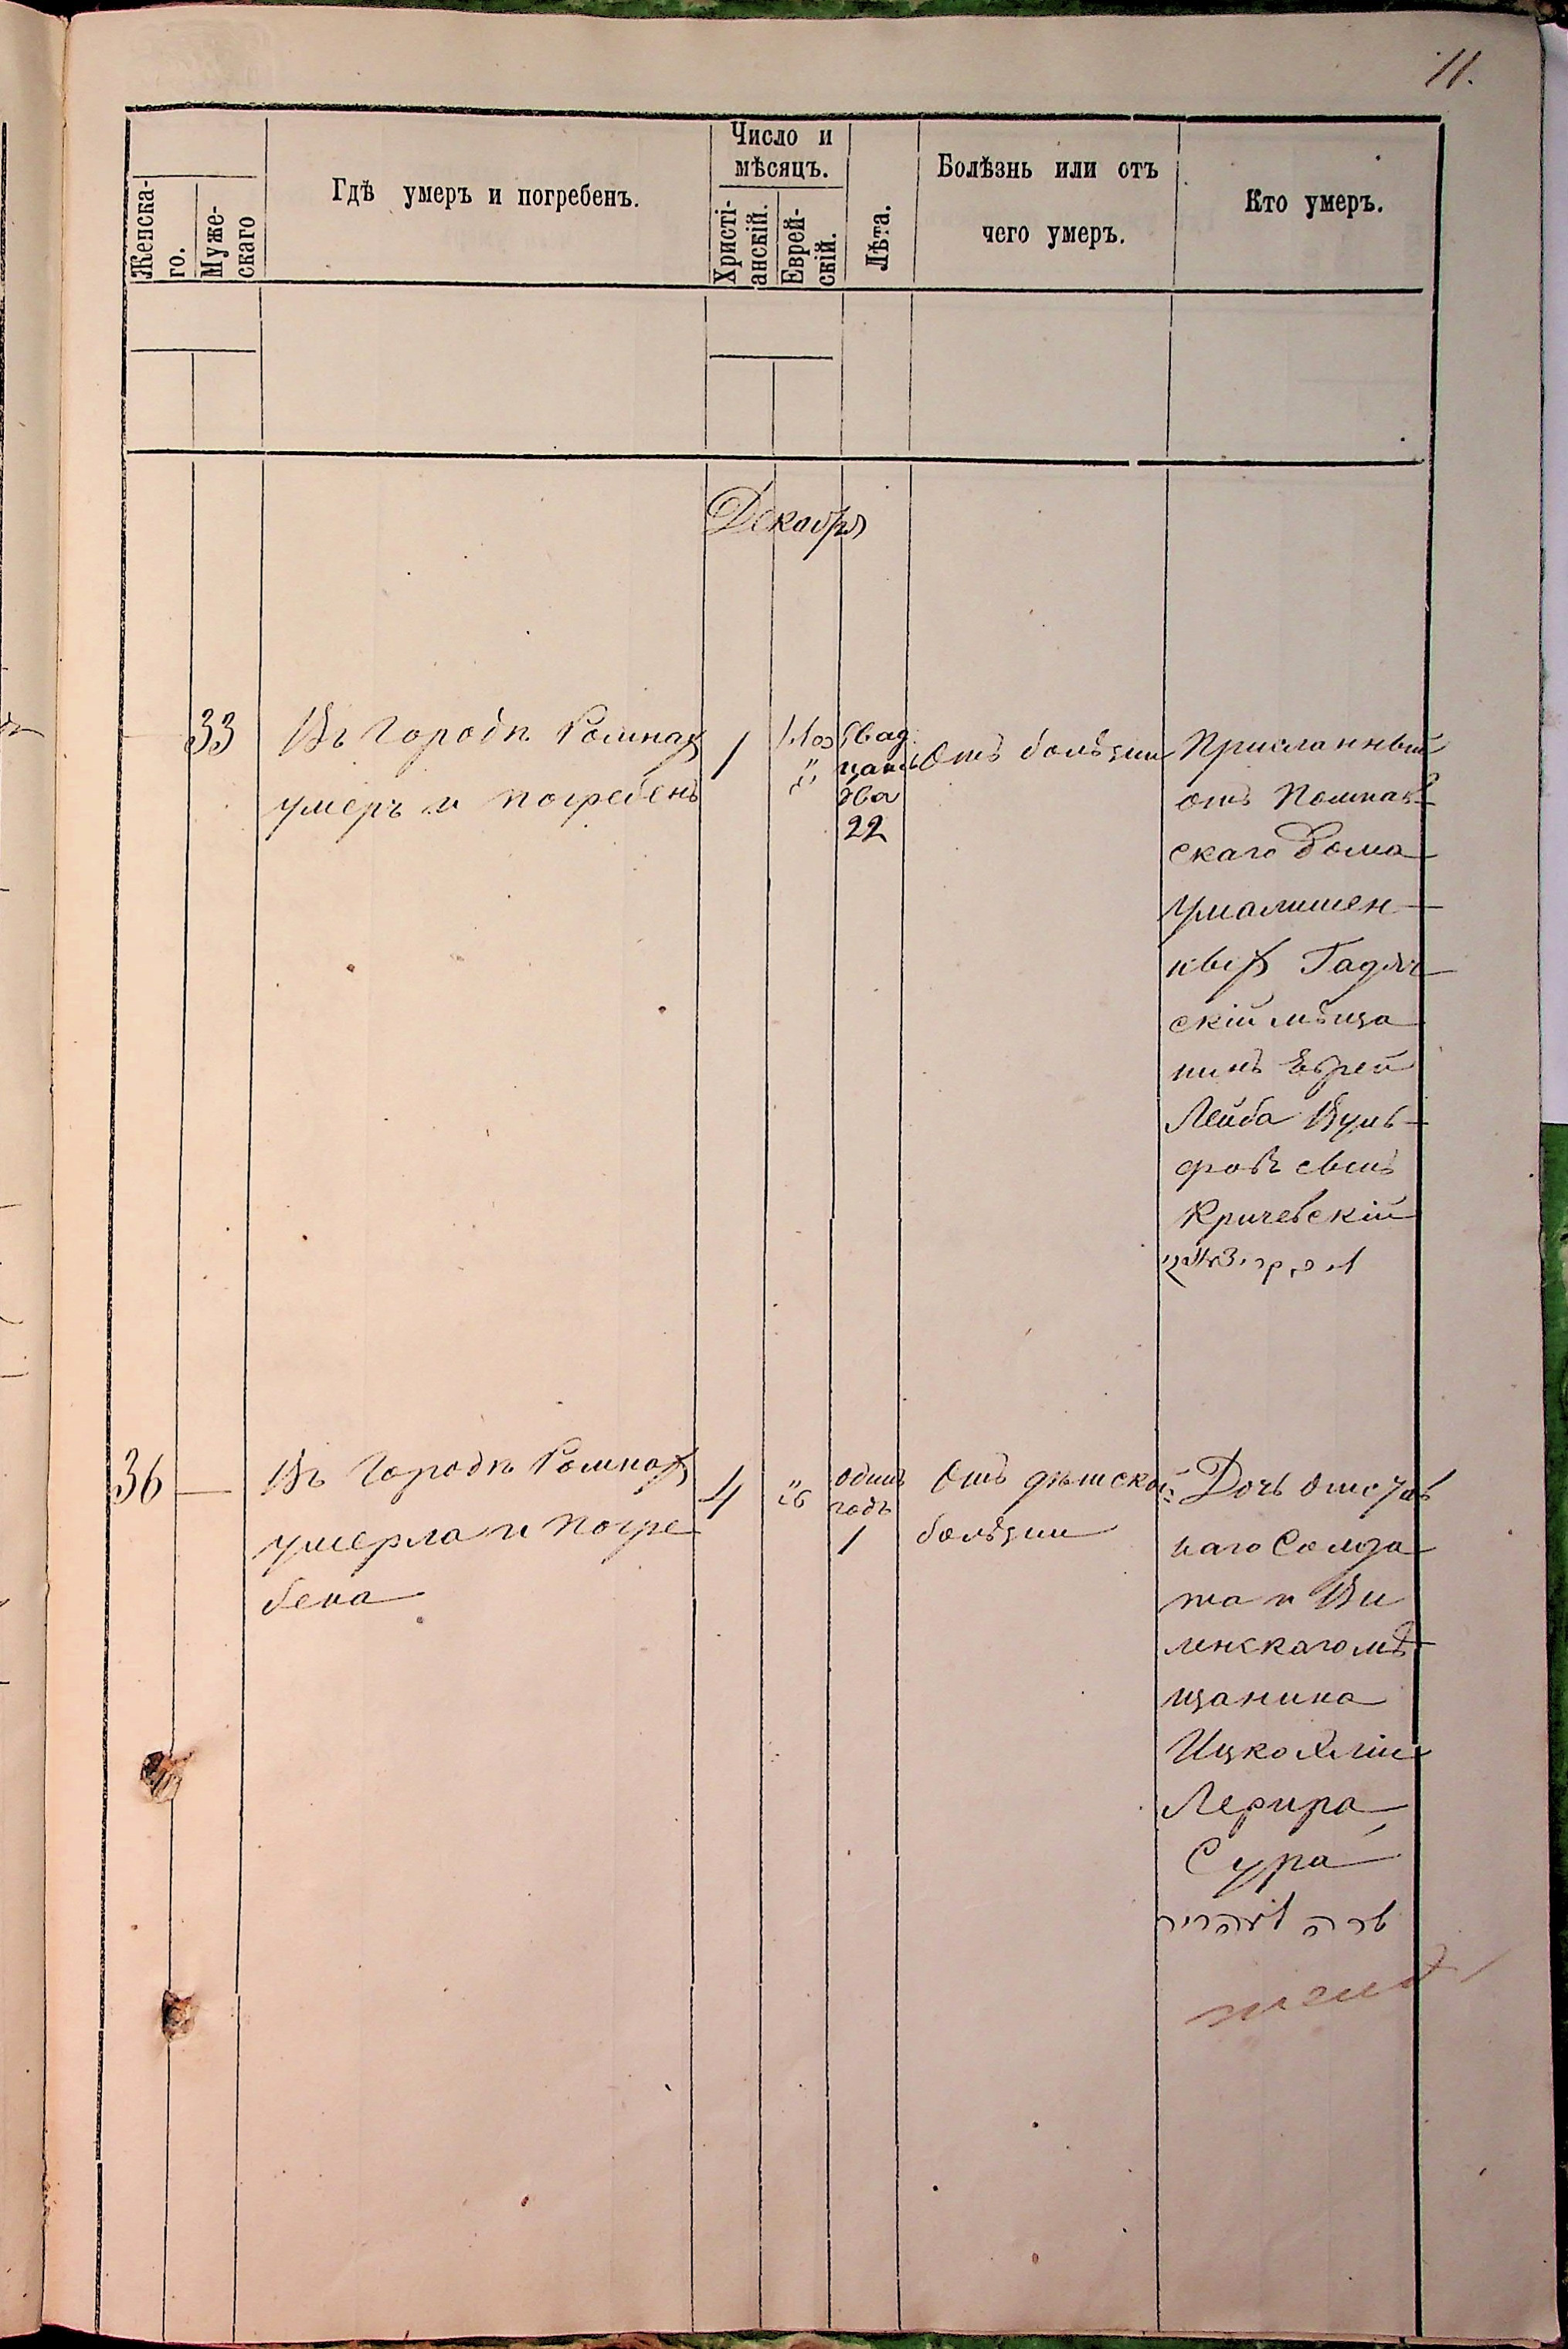 11.
Женска-
го.
Муже-
скаго
Гдѣ умеръ и погребенъ.
Число и
мѣсяцъ.
Христі-
анскій.
Еврей-
скій.
Лѣта.
Болѣзнь или отъ
чего умеръ.
Кто умеръ.
Декабря
33
Въ городѣ Ромнах
умеръ и погребенъ
1
двад
цать
два
22
Отъ болѣзни
Присланный
отъ Полтав
скаго дома
умалишен
ных Гадяч
скій мѣща
нинъ Еврей
Лейба Вуль
фовъ сынъ
Кричевскій
36
—
Въ городѣ Ромнах
умерла и погре
бена
4
одинъ
годъ
1
Отъ дѣтской
болѣзни
Дочь отстав
наго Солда
та и Ви
ленскаго мѣ
щанина
Ицко
Сура
שרה